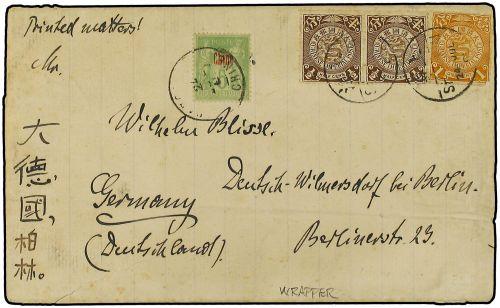 Printed matters!
Mr.
Wilhelm Blisse.
Deutsch-Wilmersdorf bei Berlin
Berlinerstr. 23.
Germany
(Deutschland).
大德國,柏林。
WRAPPER